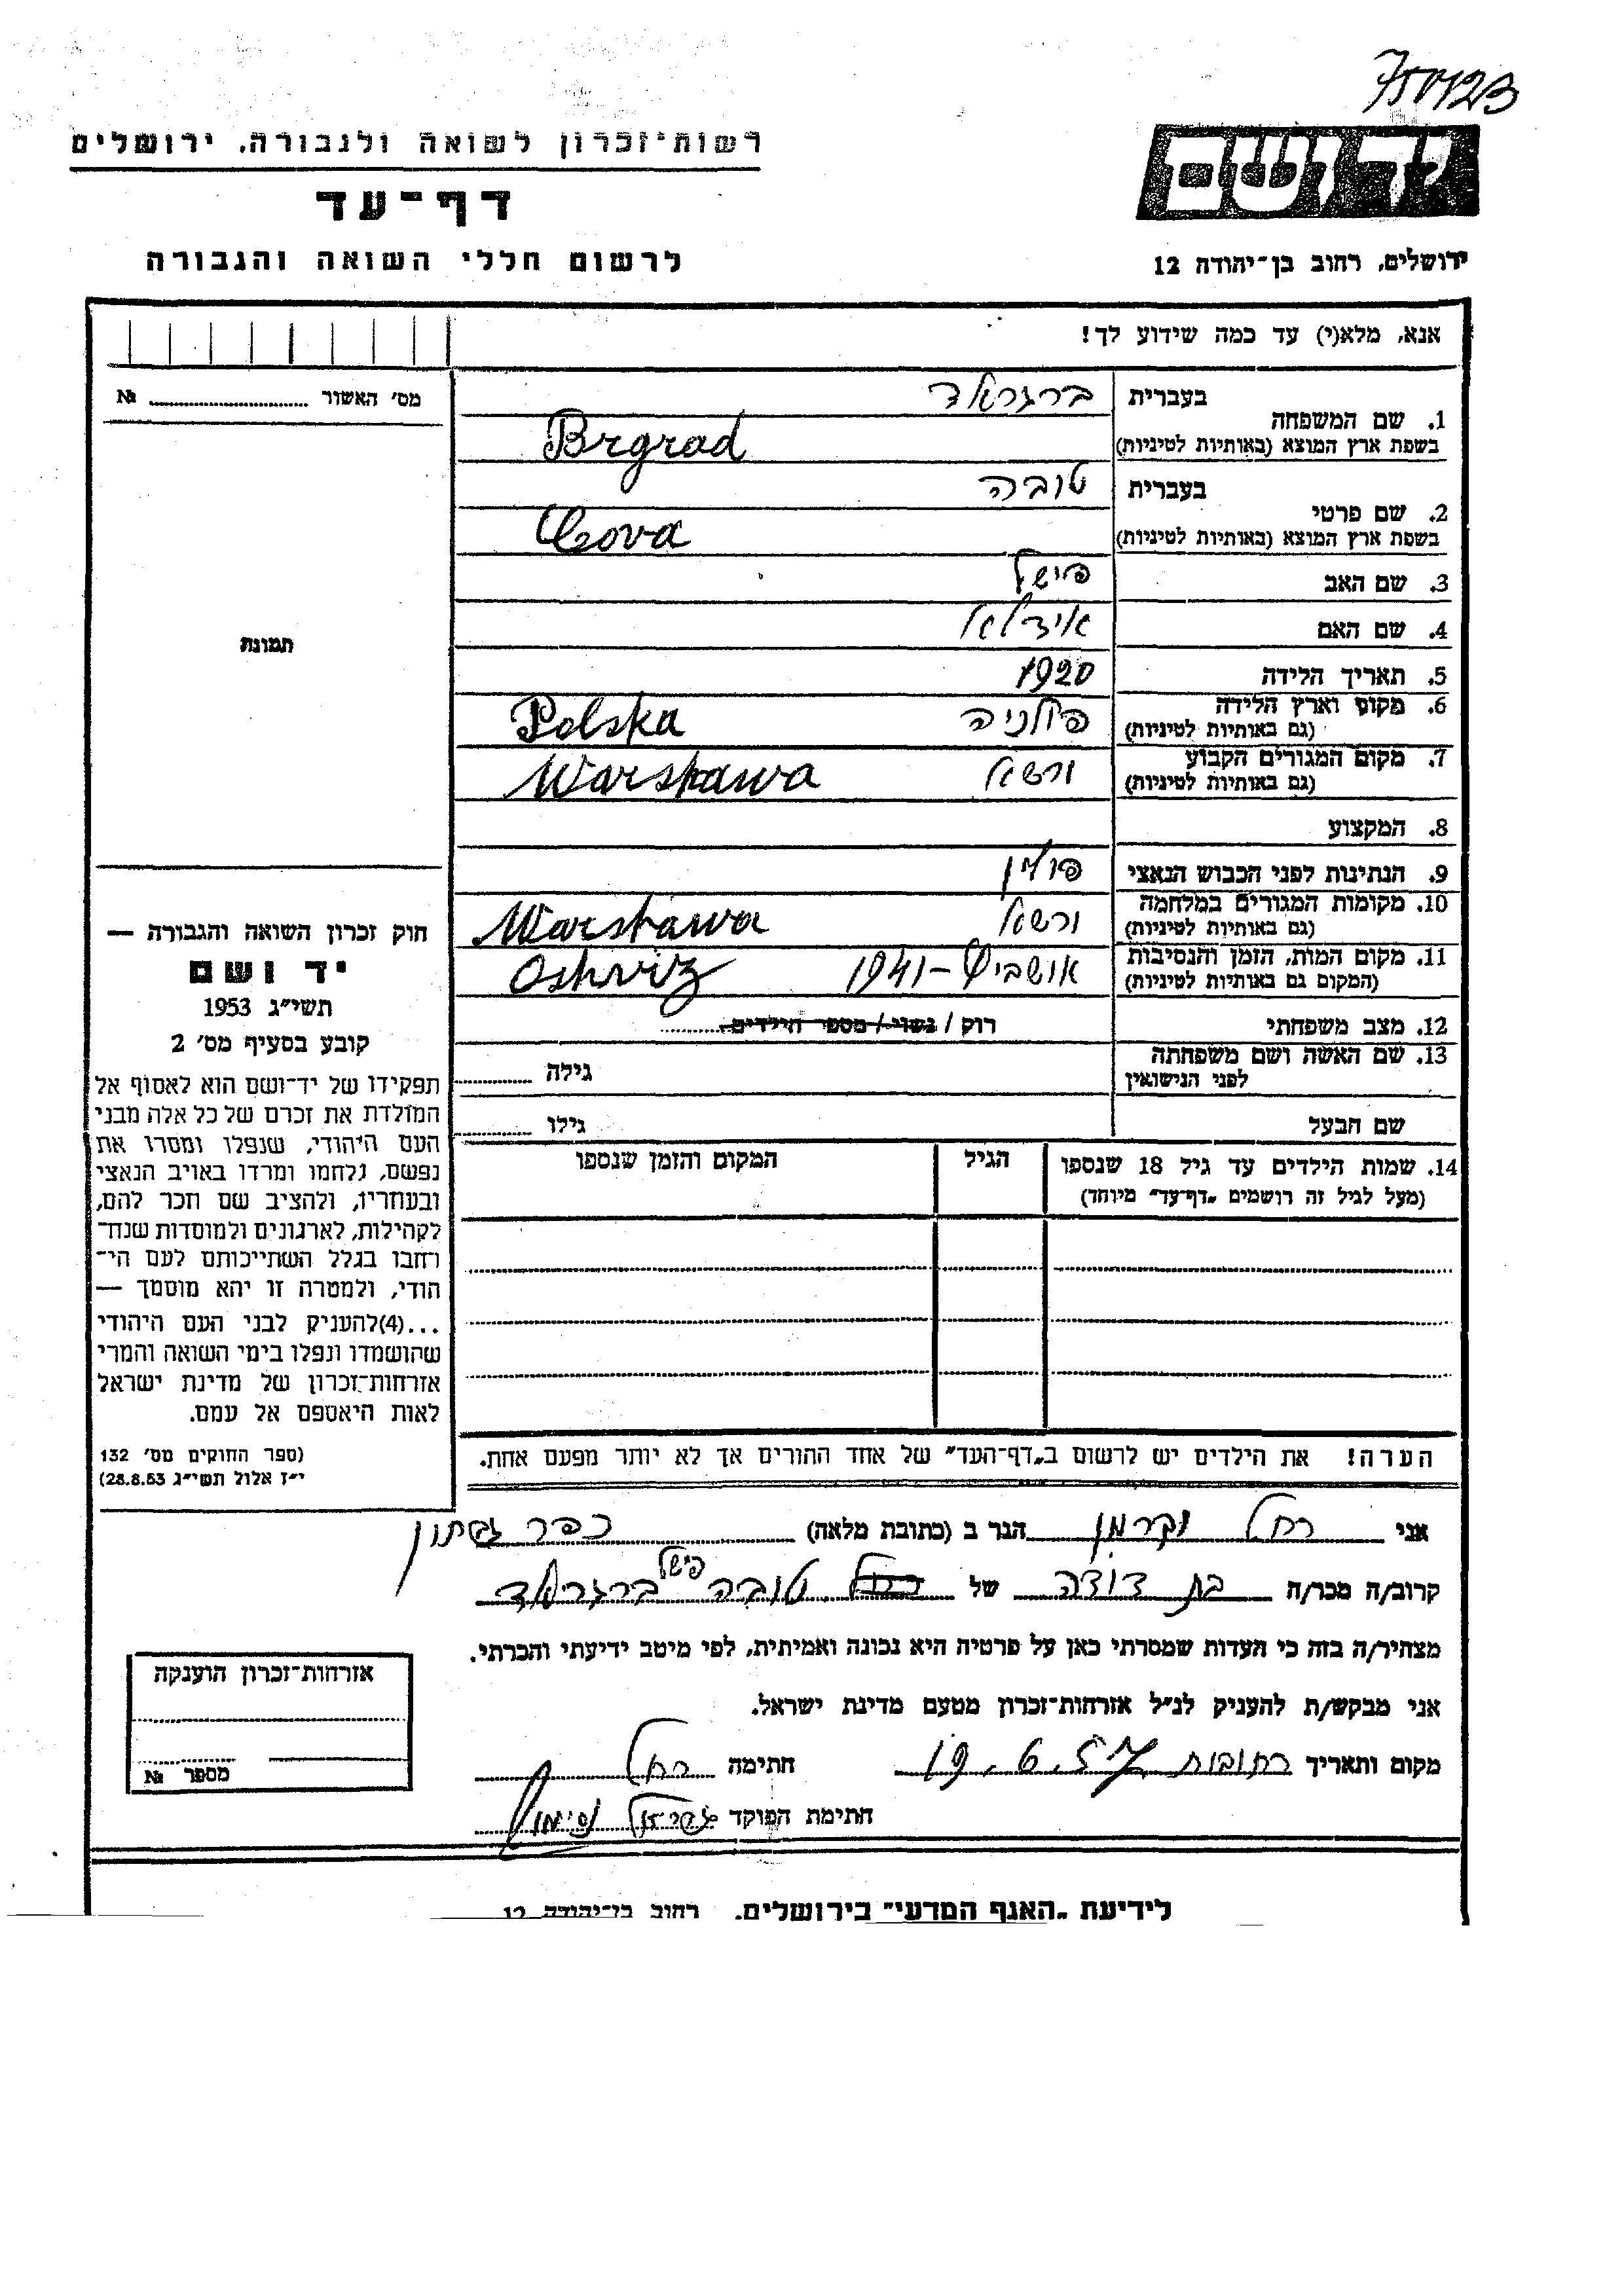 750123
יד ושם
רשות־זכרון לשואה ולגבורה, ירושלים
דף־עד
לרשום חללי השואה והגבורה
ירושלים, רחוב בן־יהודה 12
אנא, מלא(י) עד כמה שידוע לך!
מס׳ האשור № ..........
בעברית ברגראד
1. שם המשפחה
בשפת ארץ המוצא (באותיות לטיניות) Brgrad
בעברית טובה
2. שם פרטי
בשפת ארץ המוצא (באותיות לטיניות) Tova
3. שם האב פישל
4. שם האם איידלא
5. תאריך הלידה 1920
6. מקום וארץ הלידה פולניה Polska
(גם באותיות לטיניות)
7. מקום המגורים הקבוע ורשא Warshawa
(גם באותיות לטיניות)
8. המקצוע
9. הנתינות לפני הכבוש הנאצי פולין
10. מקומות המגורים במלחמה ורשא Warshawa
(גם באותיות לטיניות)
11. מקום המות, הזמן והנסיבות אושביץ – 1941 Oshviz
(המקום גם באותיות לטיניות)
12. מצב משפחתי רוק / נשוי / מספר הילדים ..........
13. שם האשה ושם משפחתה גילה ..........
לפני הנישואין
שם הבעל גילו ..........
14. שמות הילדים עד גיל 18 שנספו הגיל המקום והזמן שנספו
(מעל לגיל זה רושמים „דף־עד״ מיוחד)
תמונת
חוק זכרון השואה והגבורה —
יד ושם
תשי״ג 1953
קובע בסעיף מס׳ 2
תפקידו של יד־ושם הוא לאסוף אל
המולדת את זכרם של כל אלה מבני
העם היהודי, שנפלו ומסרו את
נפשם, נלחמו ומרדו באויב הנאצי
ובעוזריו, ולהציב שם וזכר להם,
לקהילות, לארגונים ולמוסדות שנח־
רבו בגלל השתייכותם לעם הי־
הודי, ולמטרה זו יהא מוסמך —
...(4)להעניק לבני העם היהודי
שהושמדו ונפלו בימי השואה והמרי
אזרחות־זכרון של מדינת ישראל
לאות היאספם אל עמם.
(ספר החוקים מס׳ 132
י״ז אלול תשי״ג 28.8.53)
הערה! את הילדים יש לרשום ב„דף־העד״ של אחד ההורים אך לא יותר מפעם אחת.
אני רחל וקרמן הגר ב (כתובת מלאה) כפר גבתון
קרוב/ה מכר/ה בת דודה של רחל טובה פישל ברגראד
מצהיר/ה בזה כי העדות שמסרתי כאן על פרטיה היא נכונה ואמיתית, לפי מיטב ידיעתי והכרתי.
אני מבקש/ת להעניק לנ״ל אזרחות־זכרון מטעם מדינת ישראל.
מקום ותאריך רחובות 19.6.57 חתימה רחל
חתימת הפוקד
אזרחות־זכרון הוענקה
מספר №
לידיעת „האגף המדעי״ בירושלים. רחוב בן־יהודה 12